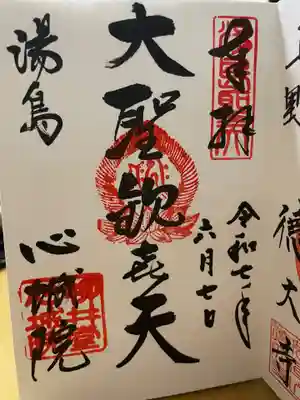 奉拝
令和七年
六月七日
大聖歓喜天
湯島
心城院
徳大寺